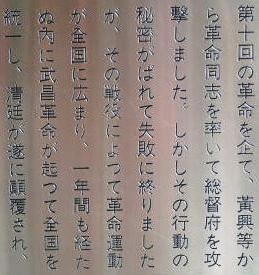 第十回の革命を企て、黃興等か
ら革命同志を率いて総督府を攻
擊しました。しかしその行動の
秘密がばれて失敗に終りました
が、その戦役によって革命運動
が全国に広まり、一年間も経た
ぬ内に武昌革命が起つて全国を
統一し、清廷が遂に顛覆され、